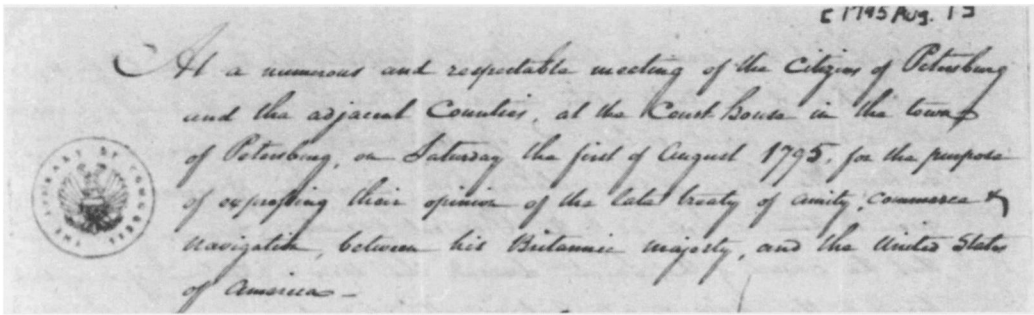 [1795 Aug. 1]
At a numerous and respectable meeting of the Citizens of Petersburg
and the adjacent Counties, at the Court house in the town
of Petersburg, on Saturday the first of August 1795, for the purpose
of expressing their opinion of the late treaty of amity, commerce &
navigation, between his Britannic majesty, and the United States
of America —
THE LIBRARY OF CONGRESS